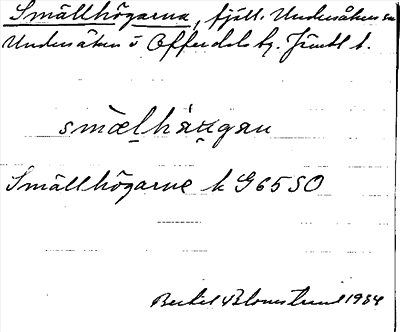 Smällhögarna, fjäll. Undersåkers sn
Undersåkers o Offerdals tg. Jämtl l.
smælhàu̯gan
Smällhögarne k G65SO
Bertil Blomstrand 1934